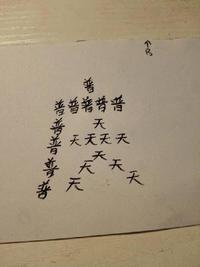 普
普普普普普
普 天
普 天天天天
天
普 天 天
普 天 天